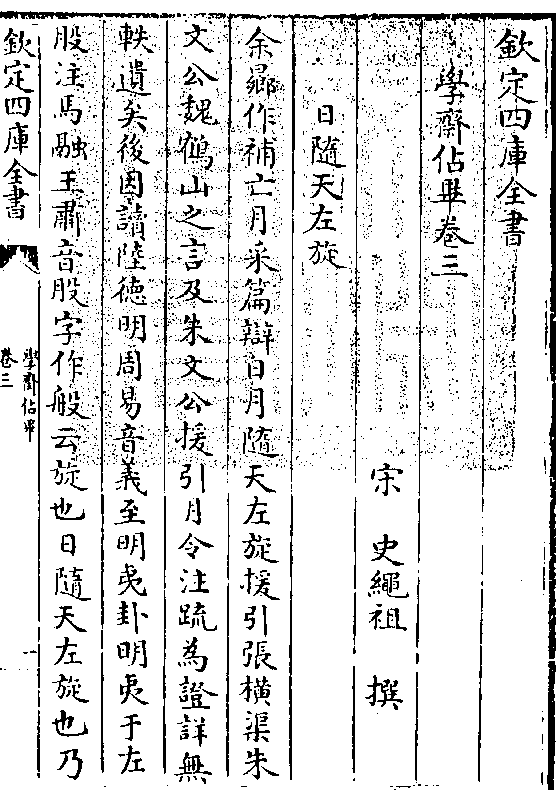 欽定四庫全書
學齋佔畢卷三
宋 史繩祖 撰
日隨天左旋
余曏作補亡月采篇辯日月隨天左旋援引張橫渠朱
文公魏鶴山之言及朱文公援引月令注疏為證詳無
軼遺矣後因讀陸德明周易音義至明夷卦明夷于左
股注馬融王肅音股字作般云旋也日隨天左旋也乃
欽定四庫全書
學齋佔畢
卷三
一